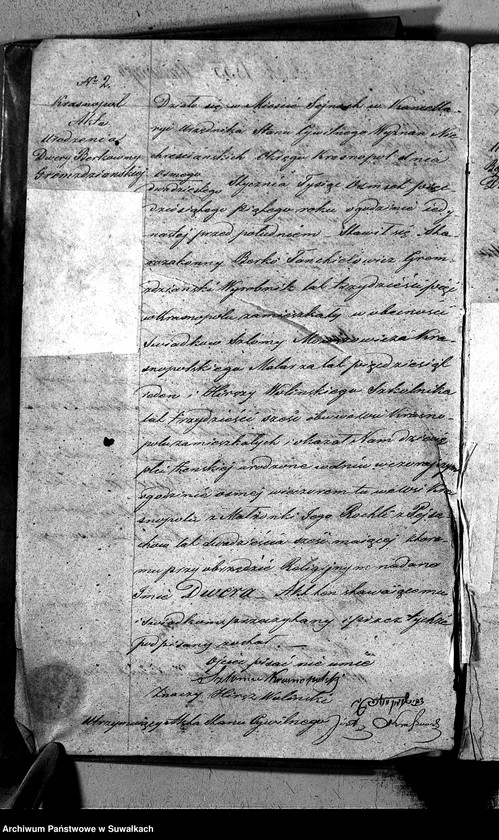 No 2.
Krasnopol
Akt
Urodzenia
Dwery Berkowny
Gromadzianskiej
Działo się w Mieście Sejnach w Kancella-
ryi Urzędnika Stanu Cywilnego Wyznań Nie
chrześciańskich Okręgu Krasnopol dnia
osmego
dwudziestego Stycznia Tysiąc Ośmset pięć
dziesiątego piątego roku o godzinie jedy
nastej przed południem Stawił się Sta
rozakonny Berko
Wyrobnik lat trzydzieści
w Krasnopolu zamieszkały w obecności
Świadków Szlomy Kra
snopolskiego Malarza lat pięćdziesiąt
jeden i Hirszy Wolinskiego Szkolnika
lat trzydzieści sześć obu w Krasno-
polu zamieszkałych i okazał Nam dziecię
płci Żeńskiej urodzone w dniu wczorajszym
o godzinie osmej wieczorem tu we wsi Kra
snopolu z Małżonki Jego Rochli z
lat dwadzieścia sześć mającej które
mu przy obrzędzie Religijnym nadano
Imie Dwera Akt ten stawaiącemu
i świadkom przeczytany i przez tychże
podpisany został. —
Ojciec pisać nie umié
Szloma Krasnopolski
Hirsz Wolinski
Utrzymujący Akta Stanu Cywilnego
Archiwum Państwowe w Suwałkach